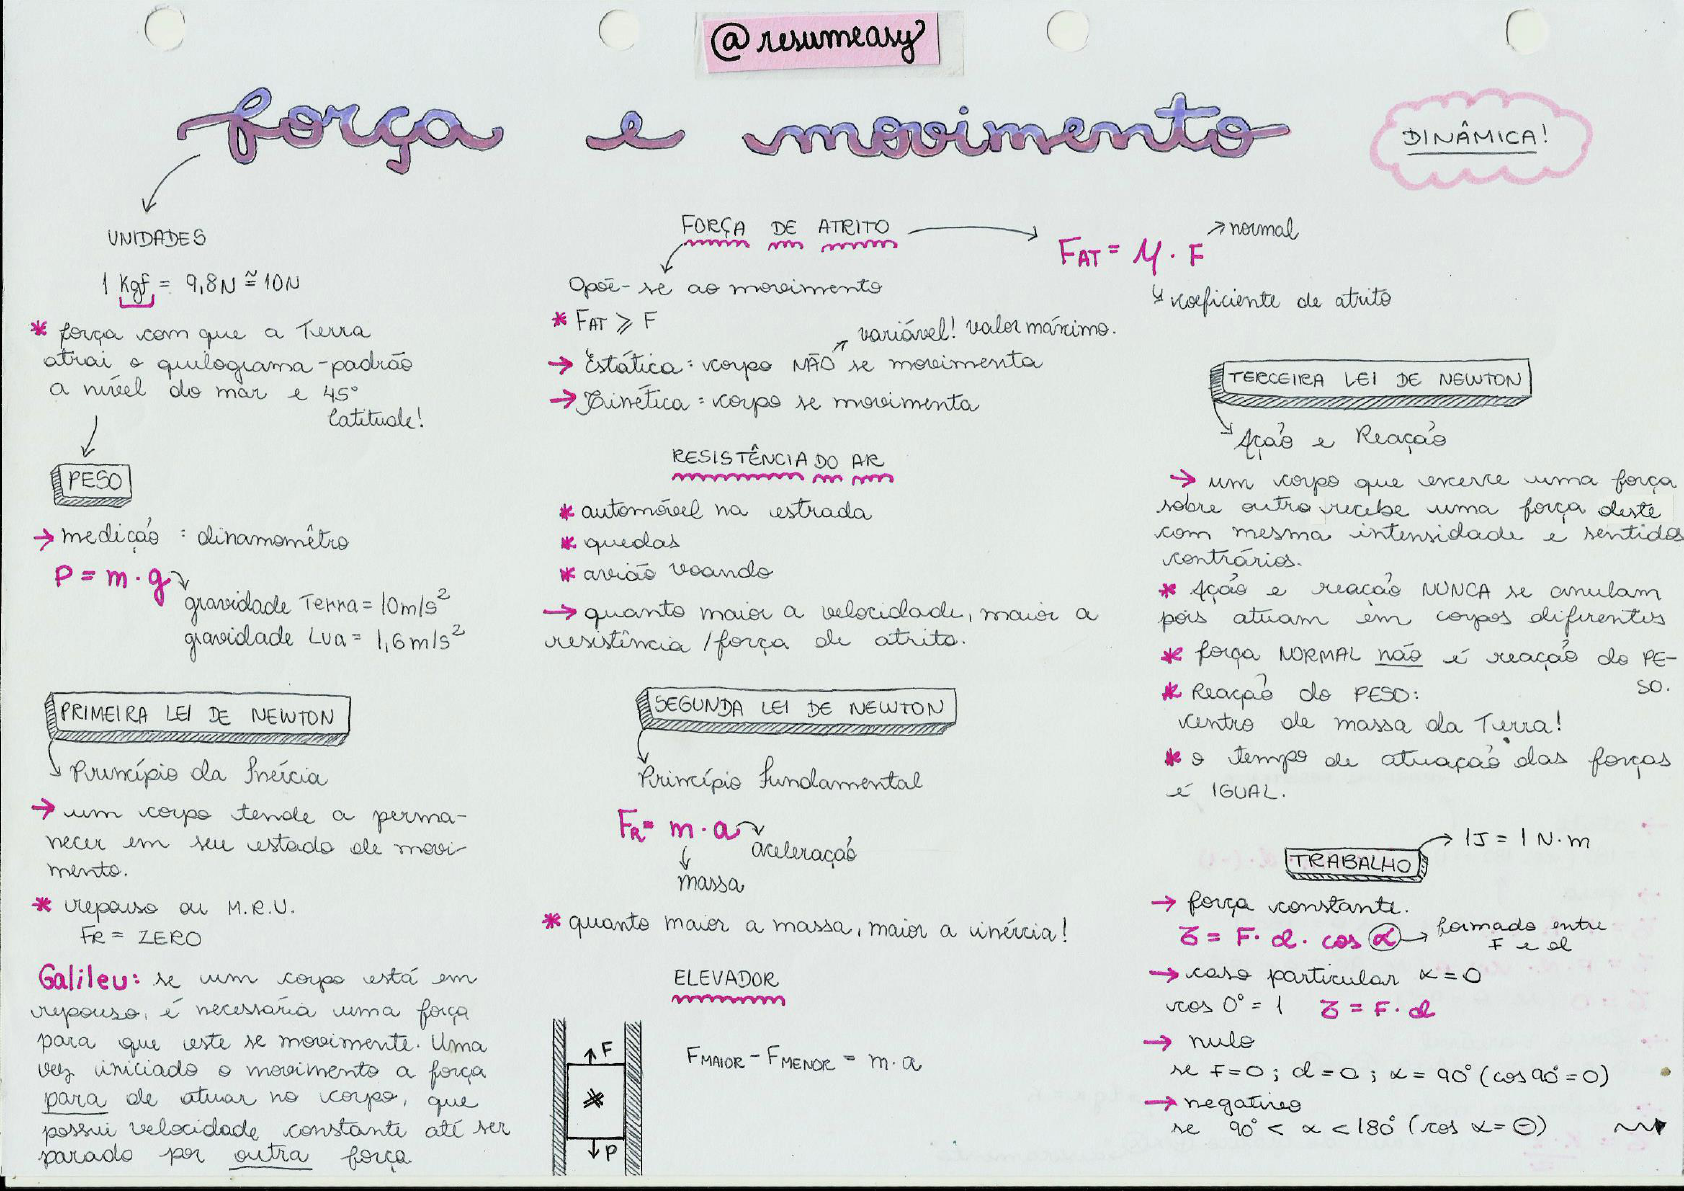 @resumeasy
força e movimento
DINÂMICA!
UNIDADES
1 Kgf = 9,8N ≅ 10N
* força com que a Terra
atrai o quilograma-padrão
a nível do mar e 45°
latitude!
PESO
→ medição : dinamométro
P = m · g
gravidade Terra = 10m/s²
gravidade Lua = 1,6m/s²
PRIMEIRA LEI DE NEWTON
Princípio da Inércia
→ um corpo tende a perma-
necer em seu estado de movi-
mento.
* repouso ou M.R.U.
FR = ZERO
Galileu: se um corpo está em
repouso, é necessária uma força
para que este se movimente. Uma
vez iniciado o movimento a força
para de atuar no corpo, que
possui velocidade constante até ser
parado por outra força
FORÇA DE ATRITO
Opõe-se ao movimento
* FAT ⩾ F
variável! valor máximo.
→ Estática : corpo NÃO se movimenta
→ Cinética : corpo se movimenta
RESISTÊNCIA DO AR
* automóvel na estrada
* quedas
* avião voando
→ quanto maior a velocidade, maior a
resistência / força de atrito.
SEGUNDA LEI DE NEWTON
Princípio Fundamental
FR = m · a
aceleração
massa
* quanto maior a massa, maior a inércia!
ELEVADOR
F
P
FMAIOR - FMENOR = m · a
FAT = μ · F
normal
coeficiente de atrito
TERCEIRA LEI DE NEWTON
Ação e Reação
→ um corpo que exerce uma força
sobre outro recebe uma força deste
com mesma intensidade e sentidos
contrários.
* Ação e reação NUNCA se anulam
pois atuam em corpos diferentes
* força NORMAL não é reação do PE-
SO.
* Reação do PESO:
centro de massa da Terra!
* o tempo de atuação das forças
é IGUAL.
TRABALHO
1J = 1 N·m
→ força constante.
τ = F · d · cos α
formado entre
F e d
→ caso particular α = 0
cos 0° = 1 τ = F · d
→ nulo
se F=0 ; d=0 ; α = 90° (cos 90° = 0)
→ negativo
se 90° < α < 180° (cos α = ⊖)